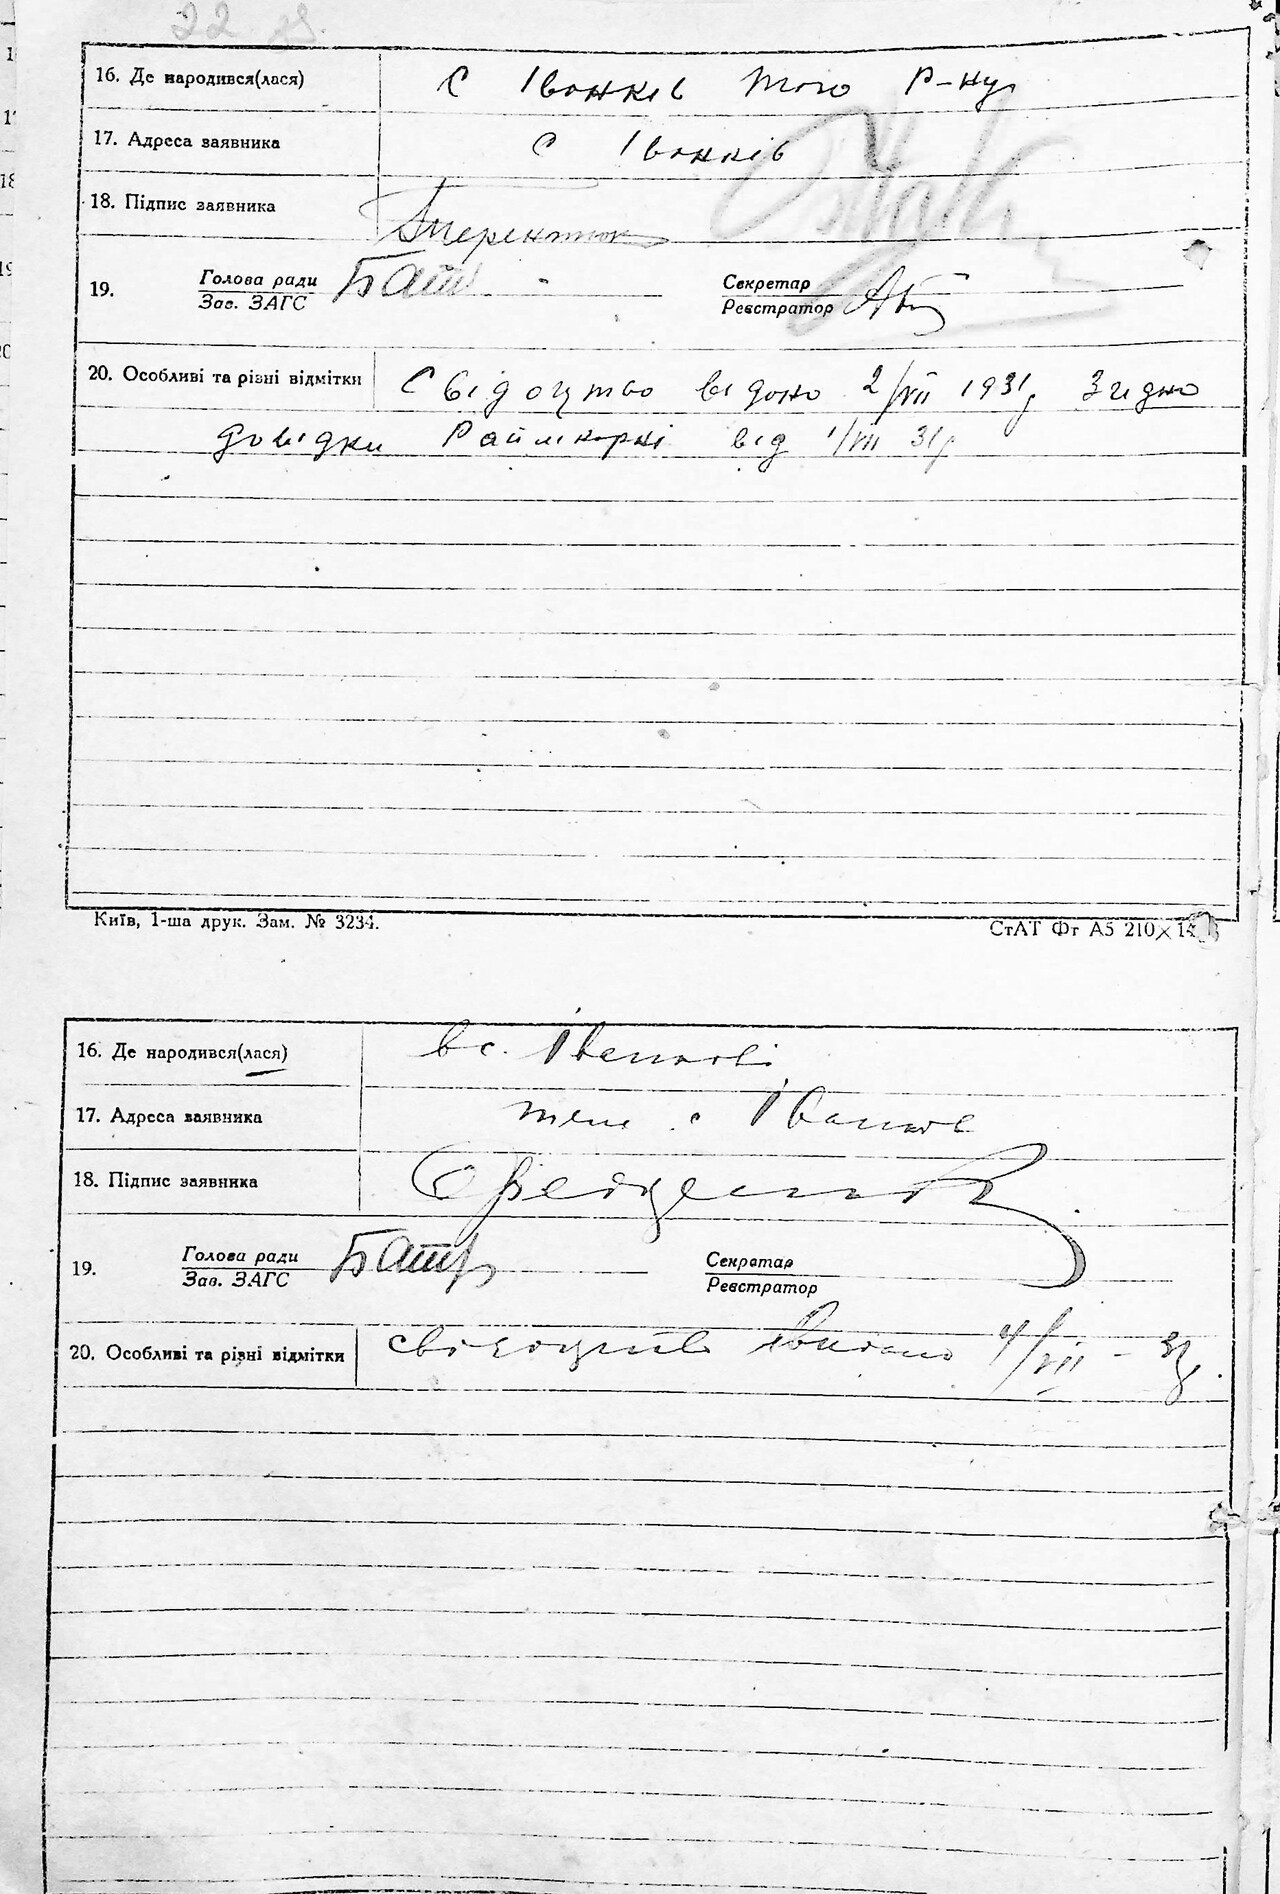 22
16. Де народився(лася) с Іванків того Р-ну
17. Адреса заявника с Іванків
18. Підпис заявника
19. Голова ради Секретар
Зав. ЗАГС Реєстратор
20. Особливі та різні відмітки Свідоцтво видано 2/VII 1931р Згідно
довідки від 1/VII 31р
Київ, 1-ша друк. Зам. № 3234. СтАТ Фт А5 210×14
16. Де народився(лася) в с. Іванкові
17. Адреса заявника с Іванков
18. Підпис заявника
19. Голова ради Секретар
Зав. ЗАГС Реєстратор
20. Особливі та різні відмітки свідоцтво видано 4/VII - 31р.